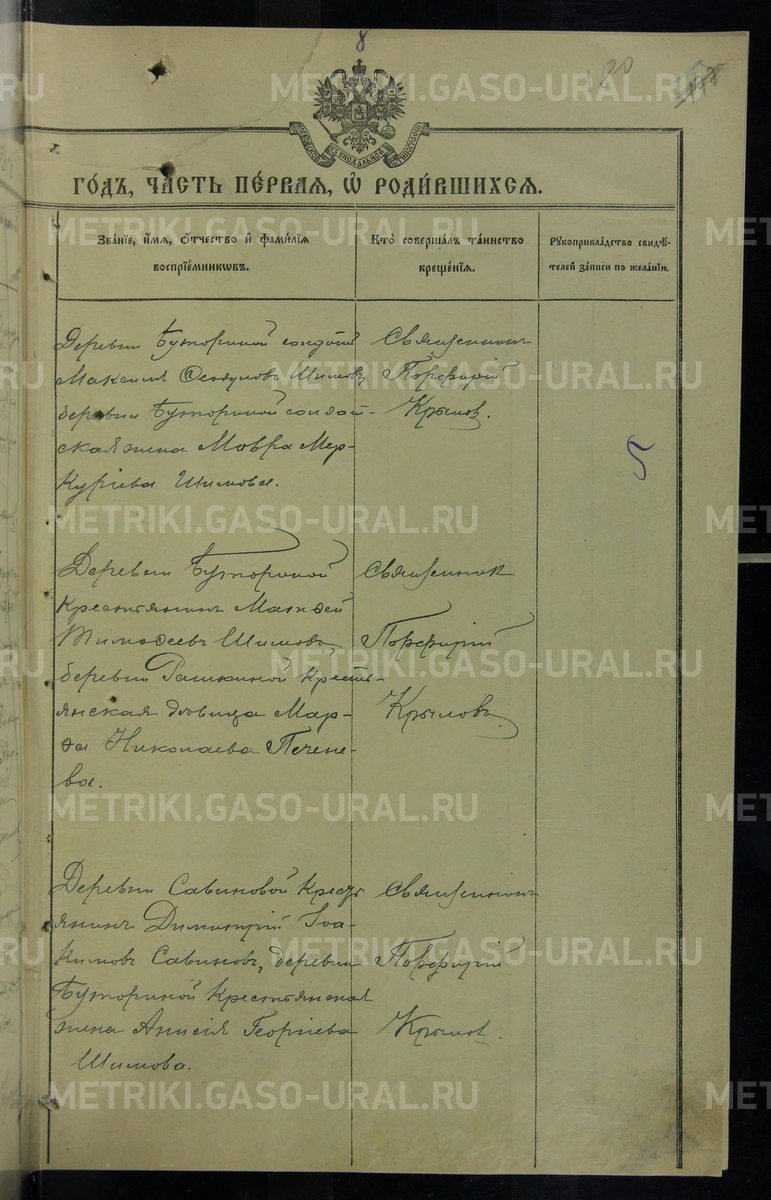 8
80
МОСКОВСКОЙ СѴНОДАЛЬНОЙ ТИПОГРАФІИ
ГО́ДЪ, ЧА́СТЬ ПЕ́РВАЯ, Ѡ РОДИ́ВШИХСЯ.
Зва́нїе, и҆́мя, ѻ҆́тчество и҆ фами́лїя
воспрїе́мникѡвъ.
Кто̀ соверша́лъ та́инство
креще́нїя.
Рꙋкоприкла́дство свидѣ́-
телей за́писи по жела́нїю.
Деревни Буториной солдатъ
Максимъ Шимовъ,
деревни Буториной солдат-
ская жена Мавра Мер-
куріева Шимова.
Священникъ
Порфирій
Крылов.
5
Деревни Буториной
Крестьянинъ Матѳей
Тимоѳеевъ Шимовъ,
деревни Рашкиной Кресть-
янская дѣвица Мар-
ѳа Николаева Печене-
ва.
Священник
Порфирій
Крыловъ.
Деревни Савиновой Кресть
янинъ Димитрій Іоа-
кимовъ Савиновъ, деревни
Буториной Крестьянская
жена Анисія Георгіева
Шимова.
Священникъ
Порфирій
Крылов.
METRIKI.GASO-URAL.RU